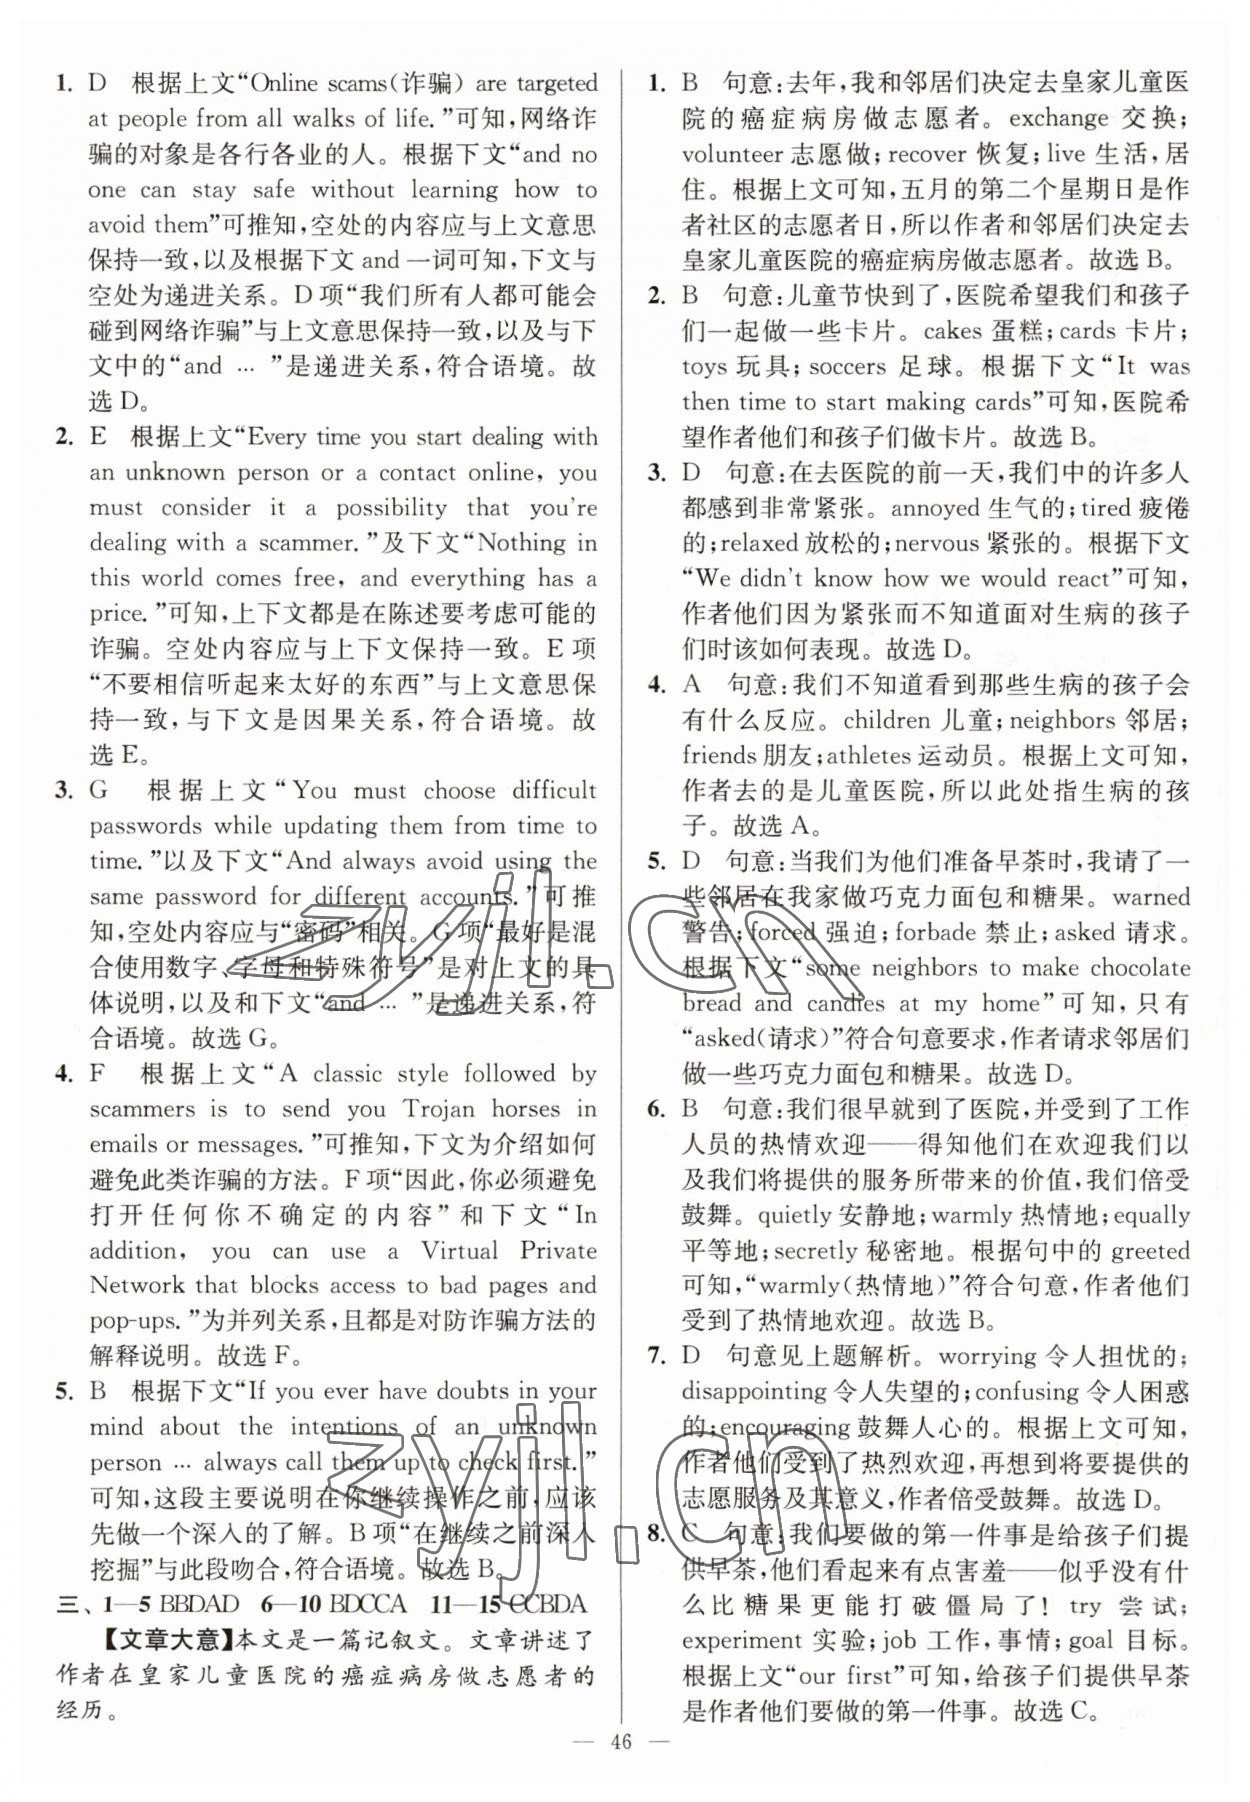 1. D 根据上文“Online scams(诈骗) are targeted
at people from all walks of life.”可知,网络诈
骗的对象是各行各业的人。根据下文“and no
one can stay safe without learning how to
avoid them”可推知,空处的内容应与上文意思
保持一致,以及根据下文 and 一词可知,下文与
空处为递进关系。D 项“我们所有人都可能会
碰到网络诈骗”与上文意思保持一致,以及与下
文中的“and …”是递进关系,符合语境。故
选 D。
2. E 根据上文“Every time you start dealing with
an unknown person or a contact online, you
must consider it a possibility that you're
dealing with a scammer.”及下文“Nothing in
this world comes free, and everything has a
price.”可知,上下文都是在陈述要考虑可能的
诈骗。空处内容应与上下文保持一致。E 项
“不要相信听起来太好的东西”与上文意思保
持一致,与下文是因果关系,符合语境。故
选 E。
3. G 根据上文“You must choose difficult
passwords while updating them from time to
time.”以及下文“And always avoid using the
same password for different accounts.”可推
知,空处内容应与“密码”相关。G 项“最好是混
合使用数字、字母和特殊符号”是对上文的具
体说明,以及和下文“and …”是递进关系,符
合语境。故选 G。
4. F 根据上文“A classic style followed by
scammers is to send you Trojan horses in
emails or messages.”可推知,下文为介绍如何
避免此类诈骗的方法。F 项“因此,你必须避免
打开任何你不确定的内容”和下文“In
addition, you can use a Virtual Private
Network that blocks access to bad pages and
pop-ups.”为并列关系,且都是对防诈骗方法的
解释说明。故选 F。
5. B 根据下文“If you ever have doubts in your
mind about the intentions of an unknown
person … always call them up to check first.”
可知,这段主要说明在你继续操作之前,应该
先做一个深入的了解。B 项“在继续之前深入
挖掘”与此段吻合,符合语境。故选 B。
三、1—5 BBDAD 6—10 BDCCA 11—15 CCBDA
【文章大意】本文是一篇记叙文。文章讲述了
作者在皇家儿童医院的癌症病房做志愿者的
经历。
1. B 句意:去年,我和邻居们决定去皇家儿童医
院的癌症病房做志愿者。exchange 交换;
volunteer 志愿做;recover 恢复;live 生活,居
住。根据上文可知,五月的第二个星期日是作
者社区的志愿者日,所以作者和邻居们决定去
皇家儿童医院的癌症病房做志愿者。故选 B。
2. B 句意:儿童节快到了,医院希望我们和孩子
们一起做一些卡片。cakes 蛋糕;cards 卡片;
toys 玩具;soccers 足球。根据下文“It was
then time to start making cards”可知,医院希
望作者他们和孩子们做卡片。故选 B。
3. D 句意:在去医院的前一天,我们中的许多人
都感到非常紧张。annoyed 生气的;tired 疲倦
的;relaxed 放松的;nervous 紧张的。根据下文
“We didn't know how we would react”可知,
作者他们因为紧张而不知道面对生病的孩子
们时该如何表现。故选 D。
4. A 句意:我们不知道看到那些生病的孩子会
有什么反应。children 儿童;neighbors 邻居;
friends 朋友;athletes 运动员。根据上文可知,
作者去的是儿童医院,所以此处指生病的孩
子。故选 A。
5. D 句意:当我们为他们准备早茶时,我请了一
些邻居在我家做巧克力面包和糖果。warned
警告;forced 强迫;forbade 禁止;asked 请求。
根据下文“some neighbors to make chocolate
bread and candies at my home”可知,只有
“asked(请求)”符合句意要求,作者请求邻居们
做一些巧克力面包和糖果。故选 D。
6. B 句意:我们很早就到了医院,并受到了工作
人员的热情欢迎——得知他们在欢迎我们以
及我们将提供的服务所带来的价值,我们倍受
鼓舞。quietly 安静地;warmly 热情地;equally
平等地;secretly 秘密地。根据句中的 greeted
可知,“warmly(热情地)”符合句意,作者他们
受到了热情地欢迎。故选 B。
7. D 句意见上题解析。worrying 令人担忧的;
disappointing 令人失望的;confusing 令人困惑
的;encouraging 鼓舞人心的。根据上文可知,
作者他们受到了热烈欢迎,再想到将要提供的
志愿服务及其意义,作者倍受鼓舞。故选 D。
8. C 句意:我们要做的第一件事是给孩子们提
供早茶,他们看起来有点害羞——似乎没有什
么比糖果更能打破僵局了！try 尝试;
experiment 实验;job 工作,事情;goal 目标。
根据上文“our first”可知,给孩子们提供早茶
是作者他们要做的第一件事。故选 C。
— 46 —
zyjl.cn
zyjl.cn